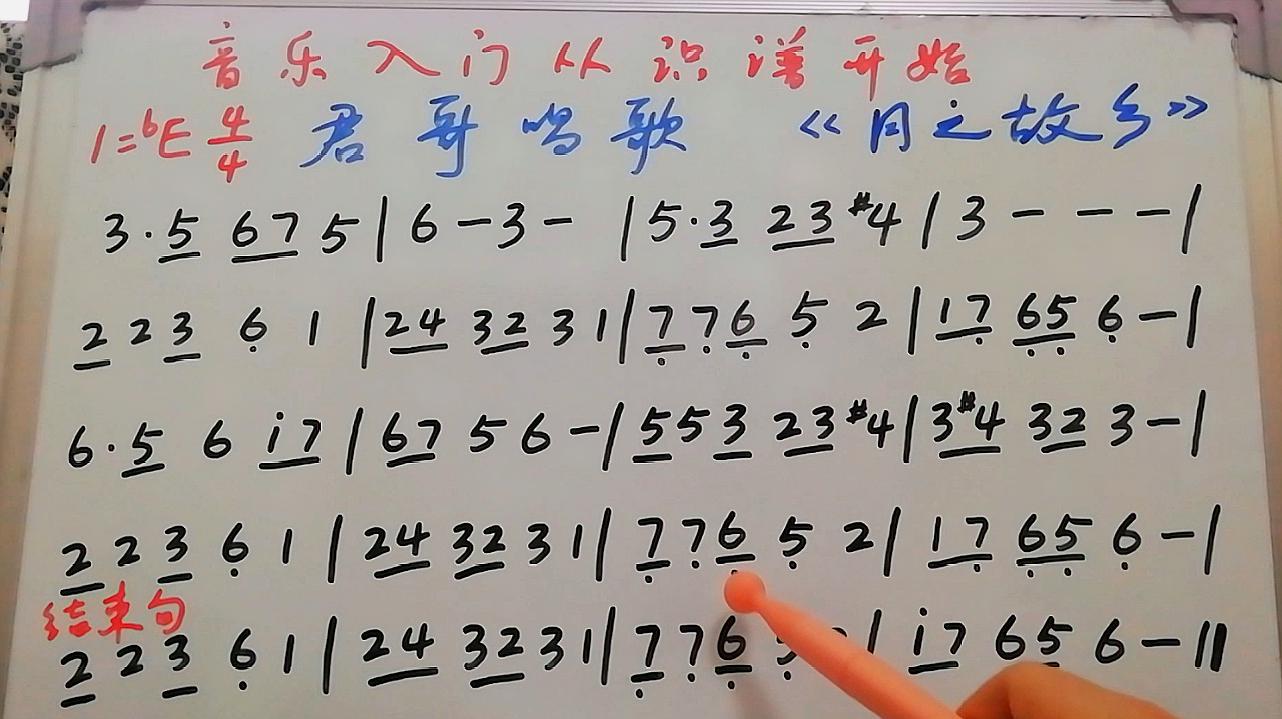 音乐入门从识谱开始
1=♭E 4/4 君哥唱歌 《月之故乡》
3·5 67 5 | 6 - 3 - | 5·3 23 #4 | 3 - - - |
2 2 3 6 1 | 24 32 3 1 | 7 7 6 5 2 | 17 65 6 - |
6·5 6 i7 | 67 5 6 - | 5 5 3 23 #4 | 3#4 32 3 - |
2 2 3 6 1 | 24 32 3 1 | 7 7 6 5 2 | 17 65 6 - |
结束句
2 2 3 6 1 | 24 32 3 1 | 7 7 6 | i7 65 6 - ||